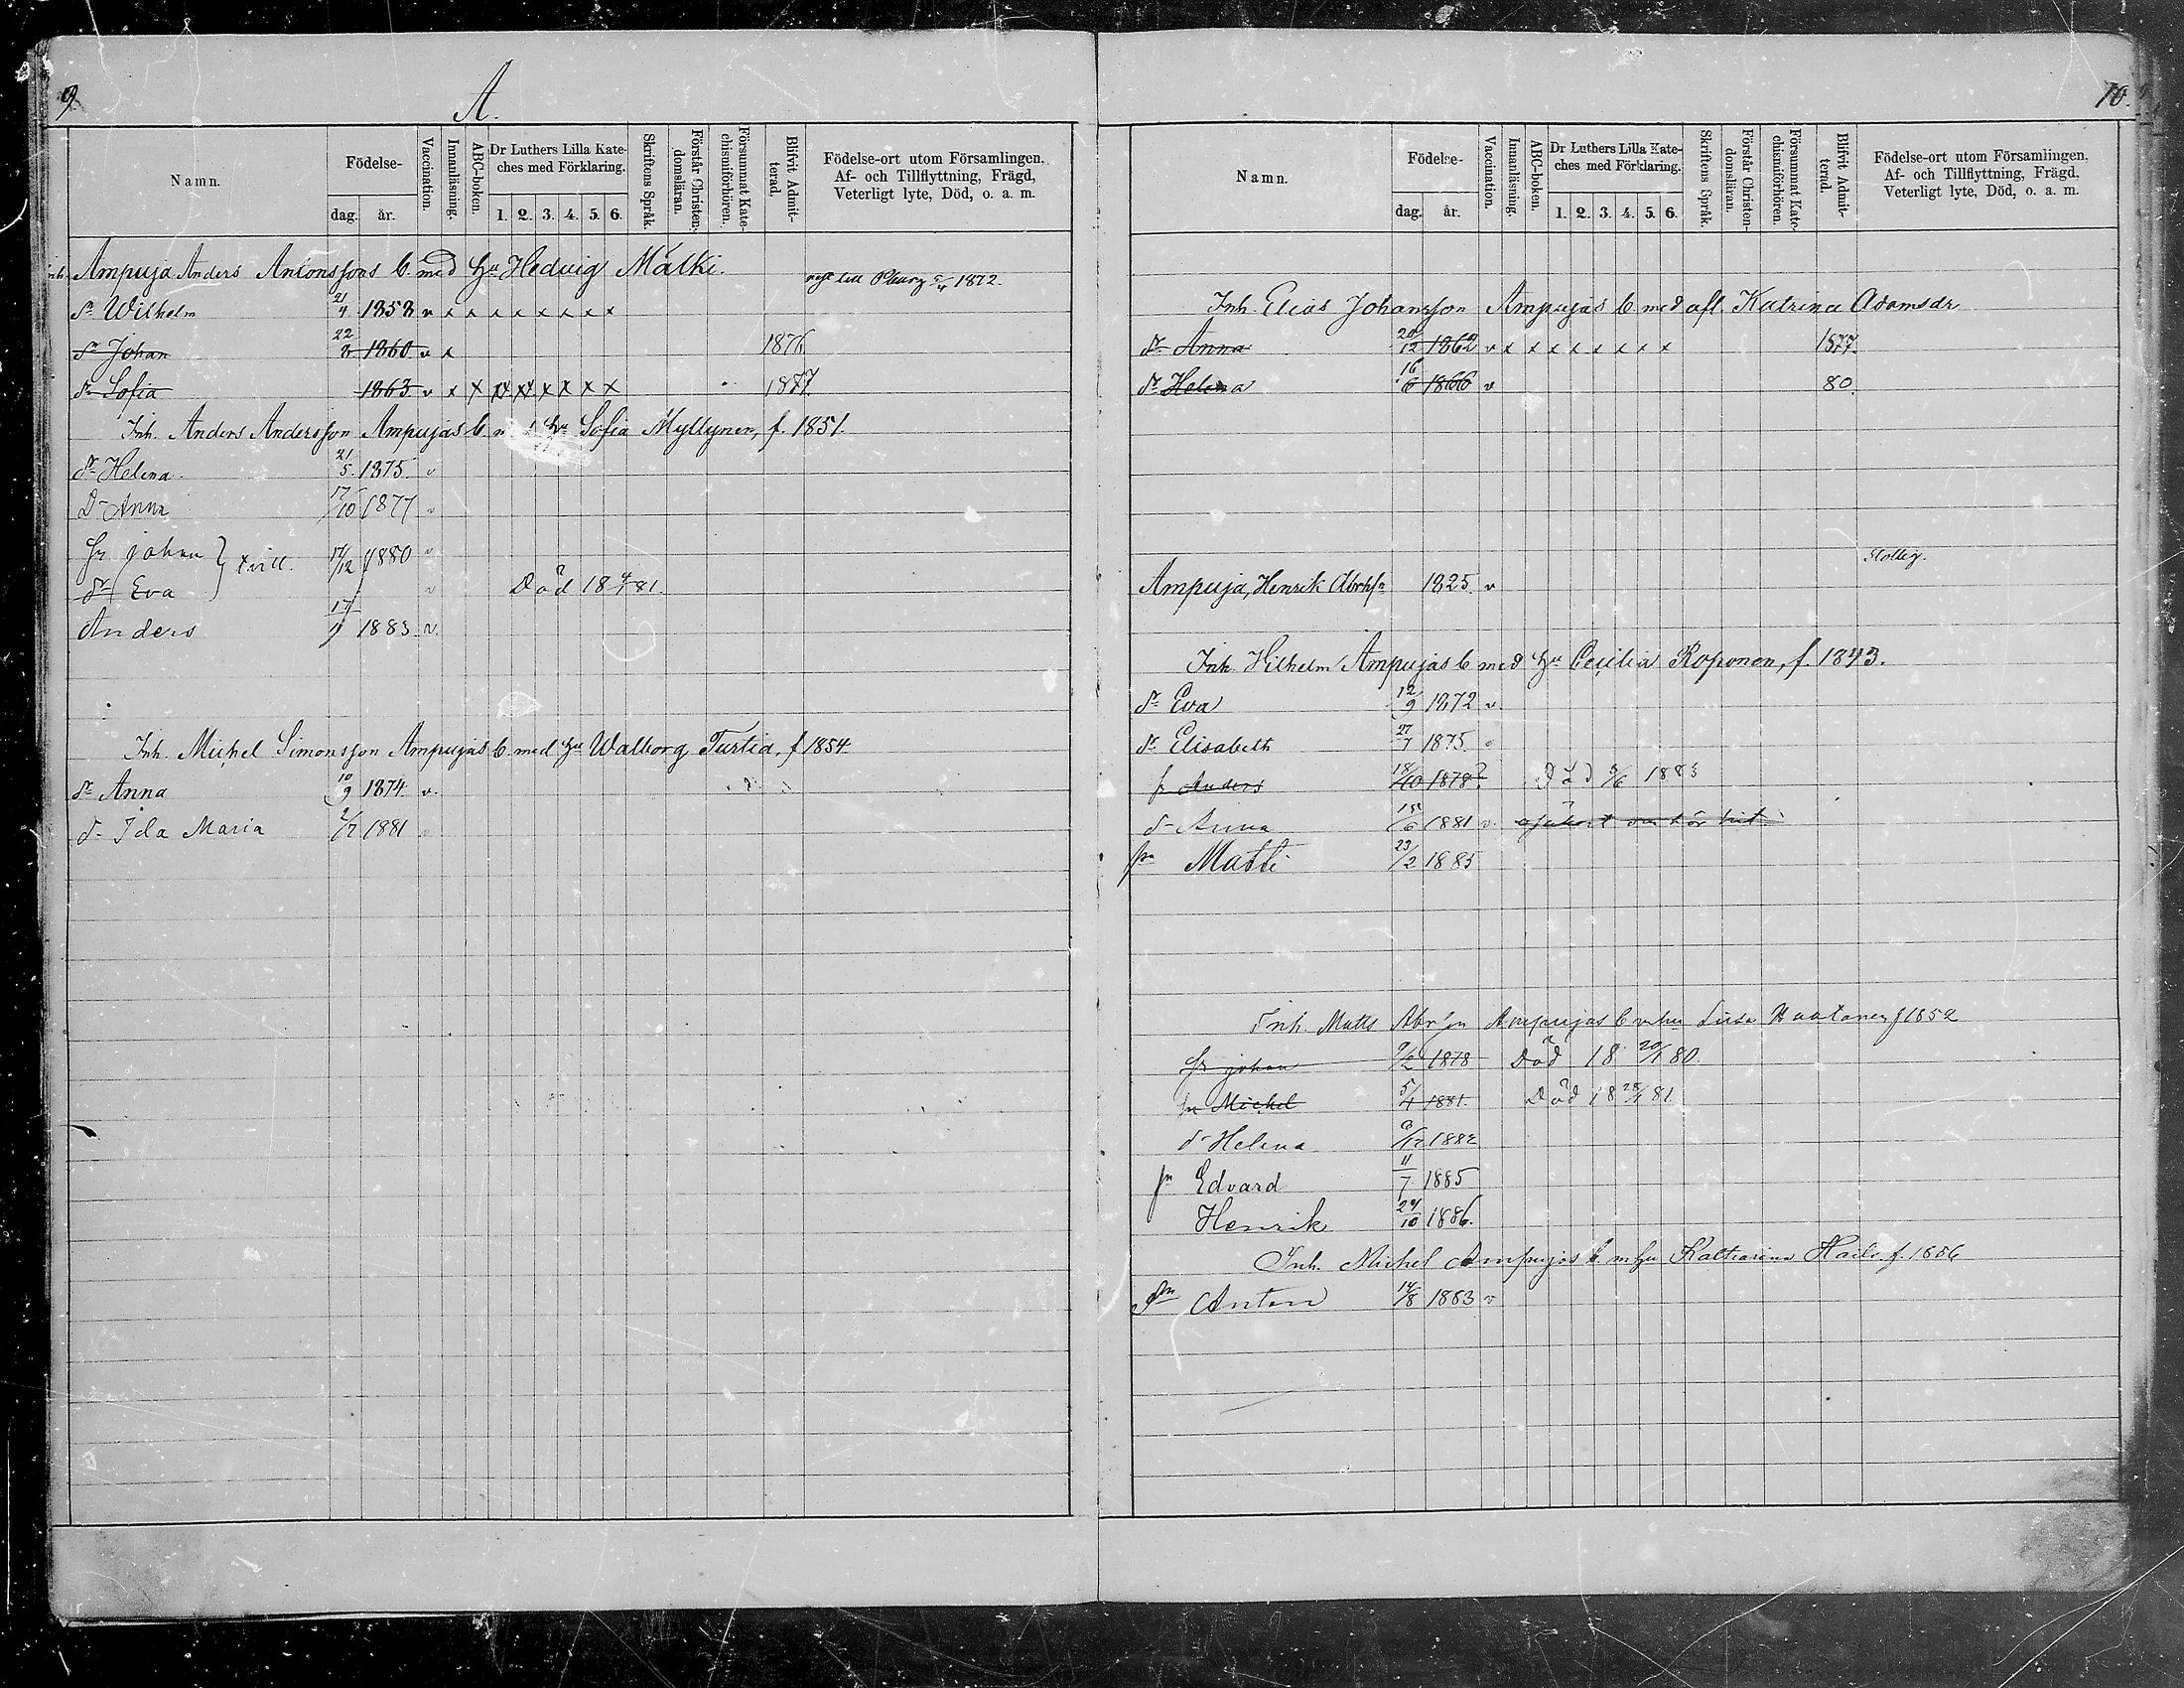 9
A.
Namn.
Födelse-
dag.
år.
Vaccination.
Innanläsning.
ABC-boken.
Dr Luthers Lilla Kate-
ches med Förklaring.
1. 2. 3. 4. 5. 6.
Skriftens Språk.
Förstår Christen-
domsläran.
Försummat Kate-
chismiförhören.
Blifvit Admit-
terad.
Födelse-ort utom Församlingen,
Af- och Tillflyttning, Frägd,
Veterligt lyte, Död, o. a. m.
Inh. Ampuja Anders Antonssons b. med hu Hedvig Mälki.
Sn Wilhelm 21/4 1858 v x x x x x x x x
Sn Johan 22/8 1860 v x 1876
Dr Sofia 1863 v x x x x x x x x 1877
Inh. Anders Andersson Ampujas b. hu Sofia Myllynen, f. 1851.
Dr Helena. 21/5 1875 v
Dr Anna 17/10 1877 v
Sn Johan } tvill. 14/12 1880 v
Dr Eva } v Död 18 4/7 81.
Anders 17/9 1883. v.
Inh. Michel Simonsson Ampujas b. med hu Walborg Turtia, f 1854.
Dr Anna 10/9 1874 v.
d. Ida Maria 2/7 1881
10.
Namn.
Födelse-
dag.
år.
Vaccination.
Innanläsning.
ABC-boken.
Dr Luthers Lilla Kate-
ches med Förklaring.
1. 2. 3. 4. 5. 6.
Skriftens Språk.
Förstår Christen-
domsläran.
Försummat Kate-
chismiförhören.
Blifvit Admit-
terad.
Födelse-ort utom Församlingen,
Af- och Tillflyttning, Frägd,
Veterligt lyte, Död, o. a. m.
Inh. Elias Johansson Ampujas b. med afl. Katrina Adamsdr
Dr Anna 20/12 1862 v x x x x x x x x 1877.
Dr Helena 16/6 1866 v 80
Ampuja, Henrik Abrhsn 1825. v
Inh. Wilhelm Ampujas b med hu Cecilia Koponen, f. 1843.
Dr Eva 12/9 1872 v
Dr Elisabeth 27/7 1875
s. Anders 18/10 1878 Död 5/6 1883
d. Anna 15/6 1881 v.
sn Matti 23/2 1885
Inh. Matts Abr:son Ampujas b m hu Lusa f 1852
Sn Johan 9/2 1878 Död 18 20/1 80.
sn Michel 5/4 1881. Död 18 28/4 81
d. Helena 1882
sn Edvard 11/7 1885
Henrik 24/10 1886.
Inh. Michel Ampujas b. m hu Katharina f. 1856
Sn Anton 14/8 1883 v